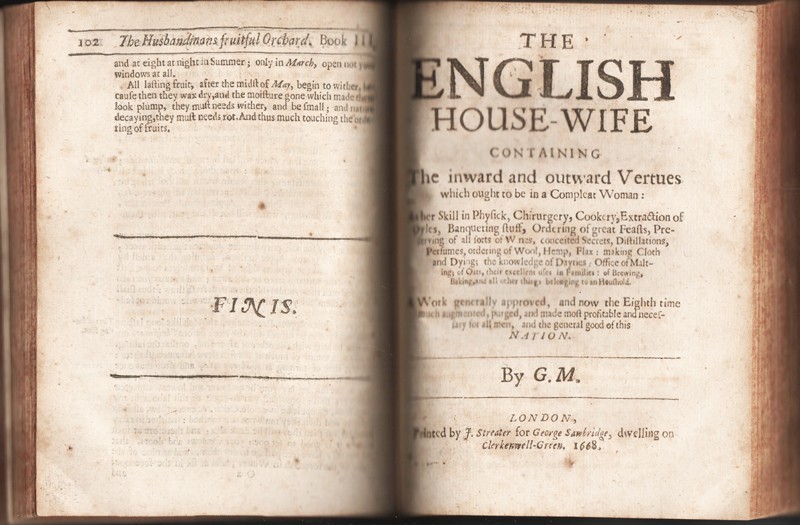 102 The Husbandmans fruitful Orchard. Book III.
and at eight at night in Summer; only in March, open not your
windows at all.
All laſting fruit, after the midſt of May, begin to wither, be-
cauſe then they wax dry, and the moiſture gone which made them
look plump, they muſt needs wither, and be ſmall; and nature
decaying, they muſt needs rot. And thus much touching the orde-
ring of fruits.
FINIS.
THE
ENGLISH
HOUSE-WIFE
CONTAINING
The inward and outward Vertues
which ought to be in a Compleat Woman:
As her Skill in Phyſick, Chirurgery, Cookery, Extraction of
Oyles, Banqueting ſtuff, Ordering of great Feaſts, Pre-
ſerving of all ſorts of Wines, conceited Secrets, Diſtillations,
Perfumes, ordering of Wool, Hemp, Flax: making Cloth
and Dying; the knowledge of Dayries: Office of Malt-
ing; of Oats, their excellent uſes in Families: of Brewing,
Baking, and all other things belonging to an Houſhold.
A Work generally approved, and now the Eighth time
much augmented, purged, and made moſt profitable and neceſ-
ſary for all men, and the general good of this
NATION.
By G. M.
LONDON,
Printed by J. Streater for George Sawbridge, dwelling on
Clerkenwell-Green, 1668.